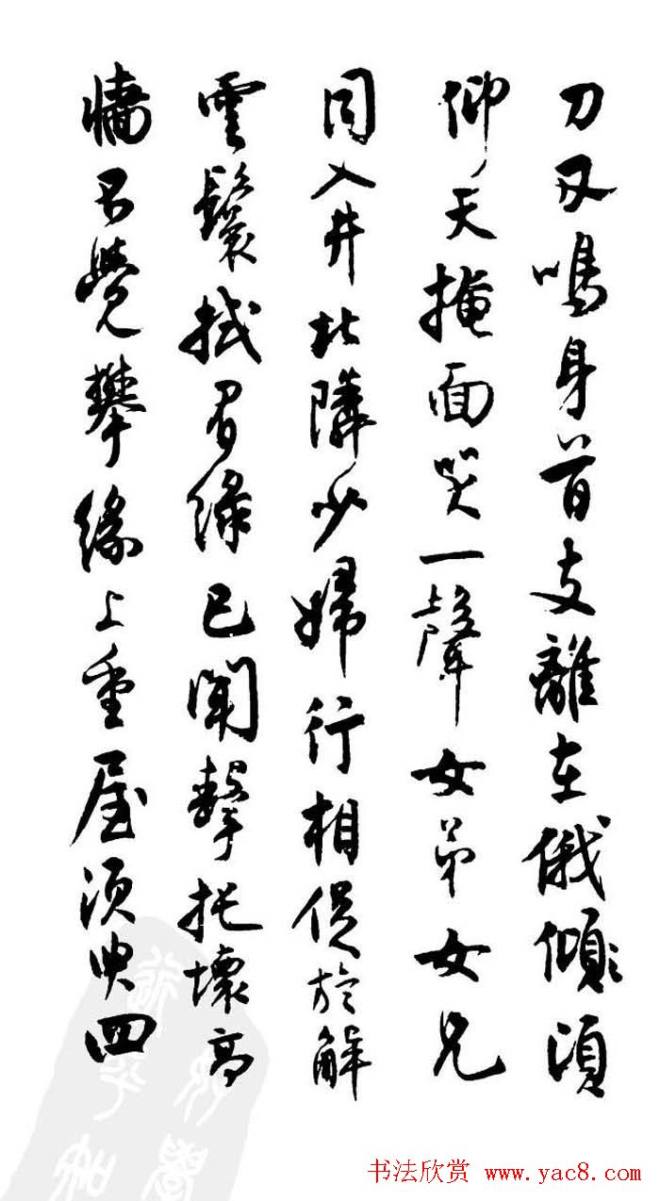 刀刃鳴身首支離在俄傾須
仰天掩面哭一聲女弟女兄
同入井北隣少婦行相促於解
雲鬟拭眉綠已聞擊托壞高
牆不覺攀緣上重屋須臾四
书法欣赏 www.yac8.com